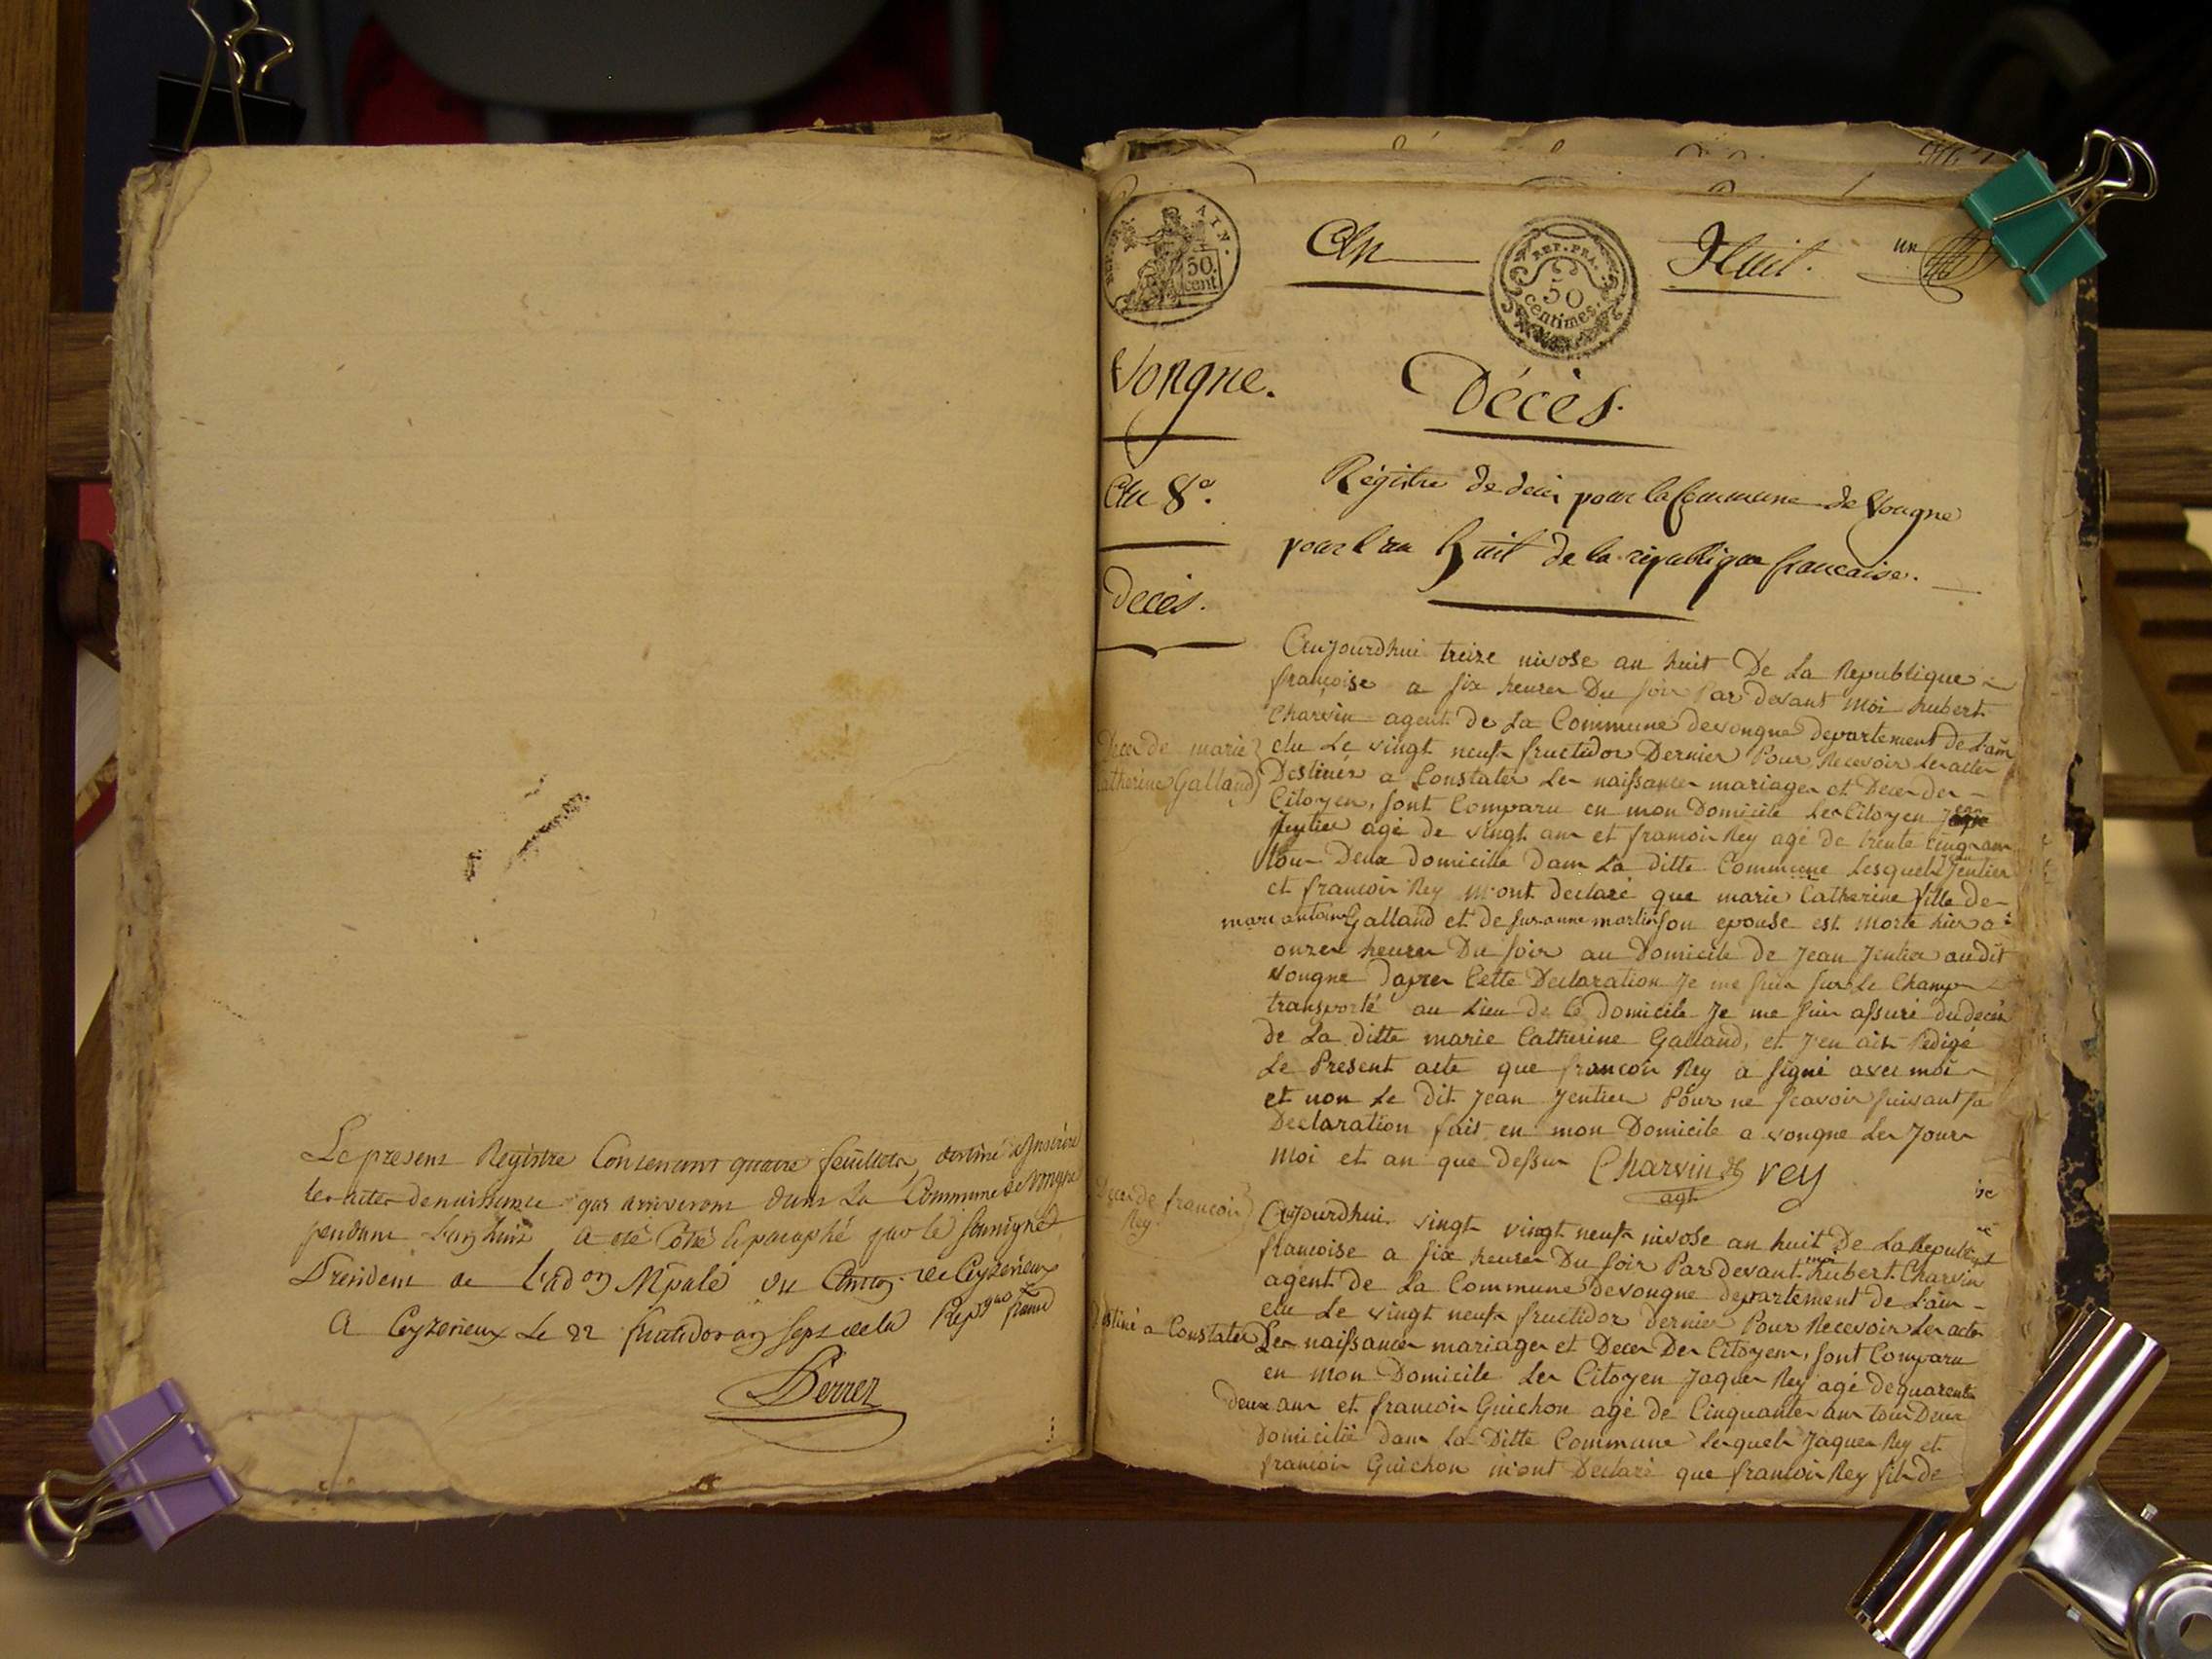 Le present Registre Contenant quatre feuillets destiné a Inscrire
les actes de naissance qui arriveront dans La Commune de Vongne
pendant L'an huit a eté Coté & paraphé par le soussigné
President de l'ad.on Mpale du Canton de Ceyzerieux
A Ceyzerieux Le 22 fructidor an sept de la Repque franc
Perret
REP. FRA. AIN.
50 cent
An
REP. FRA.
50
centimes
Huit.
un
Vongne.
Décès.
An 8e.
Régistre de décès pour la Commune de Vongne
pour l'an huit de la république française.
Décès.
Aujourdhui treize nivose an huit De La Republique
françoise a six heures Du soir Par devant Moi hubert
Charvin agent de La Commune de vongne departement de L'ain
Deces de marie
elu Le vingt neufs fructidor Dernier Pour Recevoir Les actes
Catherine Galland
Destinés a Constater Les naissances mariages et Deces des
Citoyens, sont Comparu en mon Domicile Les Citoyen jean
Jentier agé de vingt ans et francois Rey agé de trente cinq ans
tous Deux domicilie dans La ditte Commune Lesquels jean Jentier
et francois Rey m'ont declaré que marie Catherine fille de
marc antoine Galland et de susanne martin son epouse est morte hier a
onzes heures Du soir au Domicile de Jean Jentier audit
vongne dapres Cette Declaration Je me suis sur Le Champ
transporté au Lieu de Ce domicile Je me suis assuré du deces
de La ditte marie Catherine Galland, et J'en ais Redigé
Le Present acte que francois Rey a signé avec moi
et non Le Dit Jean Jentier Pour ne scavoir suivant sa
Declaration fait en mon Domicile a vongne Les Jours
moi et an que dessus Charvin rey
agt
Deces de francois
Rey
Aujourdhui vingt vingt neufs nivose an huit De La Republi
francoise a six heures Du soir Par devant moi hubert Charvin
agent de La Commune De vongne departement de L'ain
elu Le vingt neufs fructidor dernier Pour Recevoir Les actes
Destiné a Constater Les naissances mariages et Deces Des Citoyens, sont Comparu
en mon Domicile Les Citoyen Jaques Rey agé de quarente
deux ans et francois Guichon agé de Cinquantes ans tous Deux
domicilié dans La Ditte Commune Lesquels Jaques Rey et
francois Guichon m'ont Declaré que francois Rey fils de